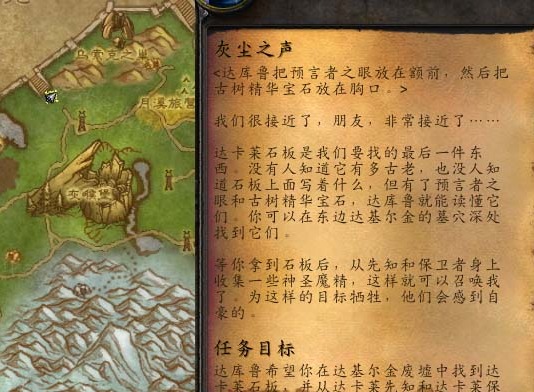 乌索克之巢
月溪旅营
灰喉堡
灰尘之声
<达库鲁把预言者之眼放在额前，然后把
古树精华宝石放在胸口。>
我们很接近了，朋友，非常接近了……
达卡莱石板是我们要找的最后一件东
西。没有人知道它有多古老，也没人知
道石板上面写着什么，但有了预言者之
眼和古树精华宝石，达库鲁就能读懂它
们。你可以在东边达基尔金的墓穴深处
找到它们。
等你拿到石板后，从先知和保卫者身上
收集一些神圣魔精，这样就可以召唤我
了。为这样的目标牺牲，他们会感到自
豪的。
任务目标
达库鲁希望你在达基尔金废墟中找到达
卡莱石板，并从达卡莱先知和达卡莱保